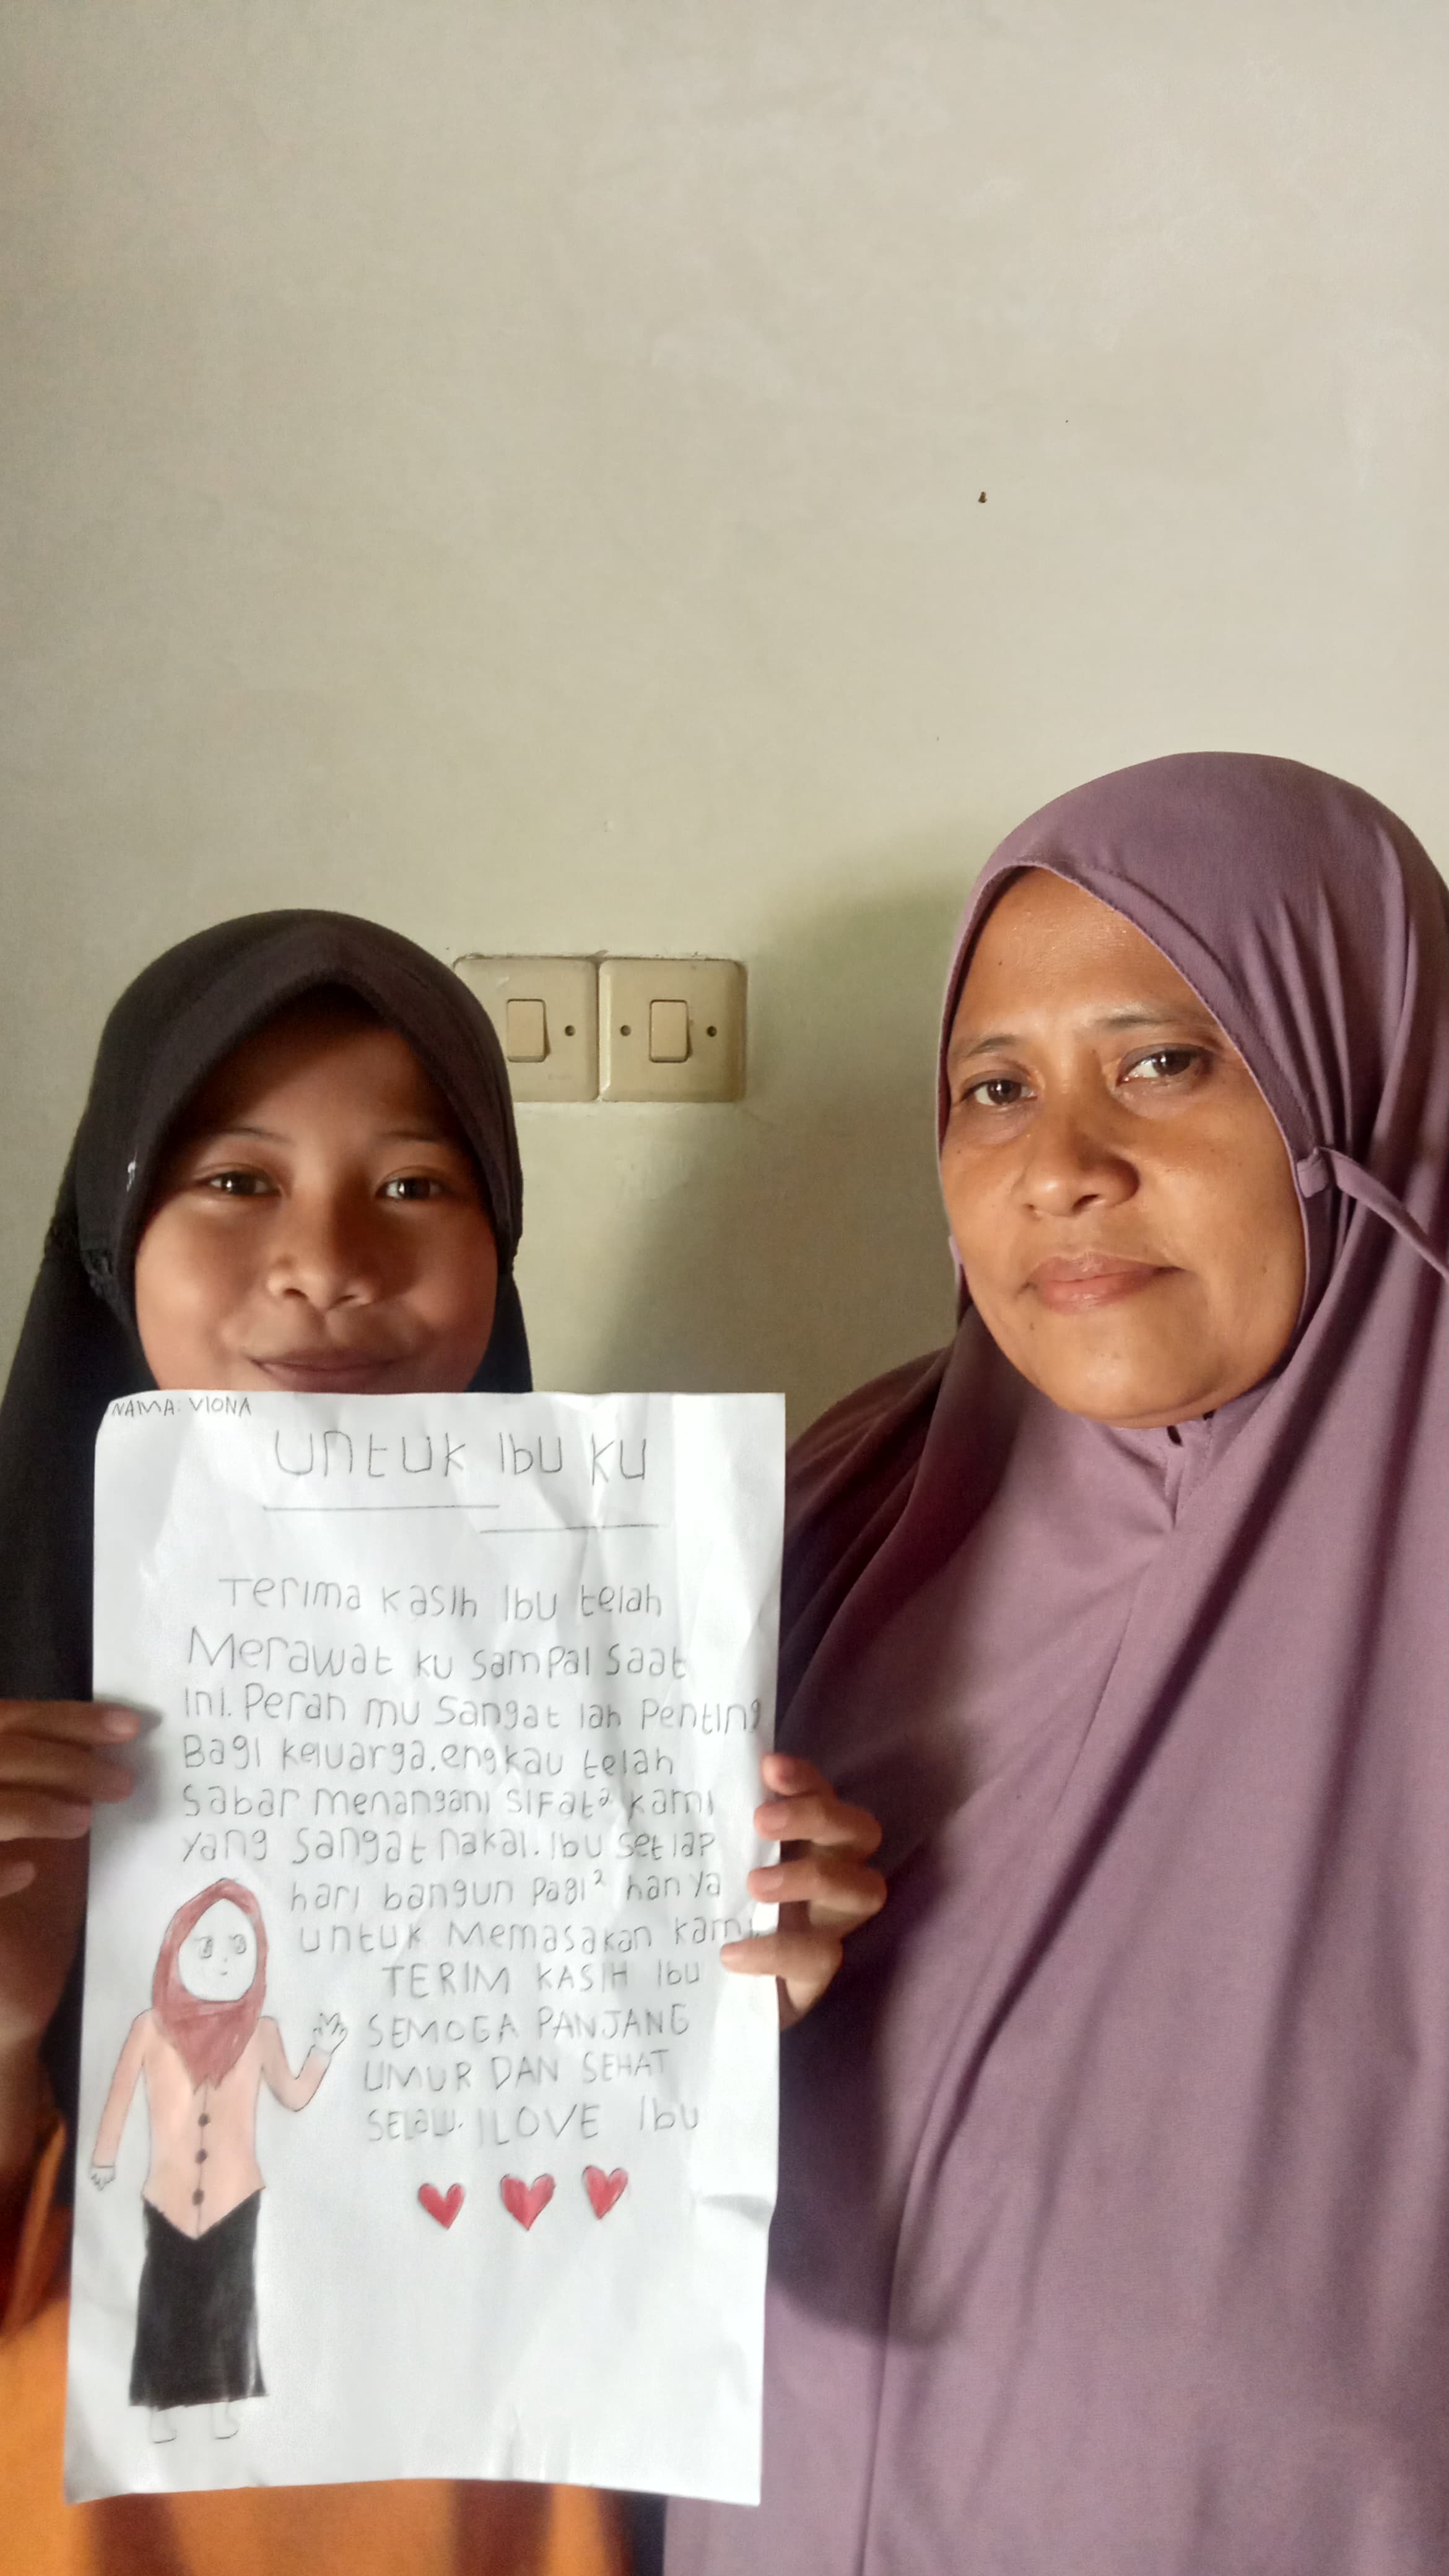 NAMA: VIONA
Untuk Ibu ku
Terima kasih Ibu telah
Merawat ku sampai saat
ini. Peran mu sangat lah Penting
Bagi keluarga. engkau telah
Sabar menangani sifat² kami
yang sangat nakal. Ibu setiap
hari bangun pagi² hanya
untuk Memasakan kami
TERIM KASIH Ibu
SEMOGA PANJANG
UMUR DAN SEHAT
I LOVE Ibu